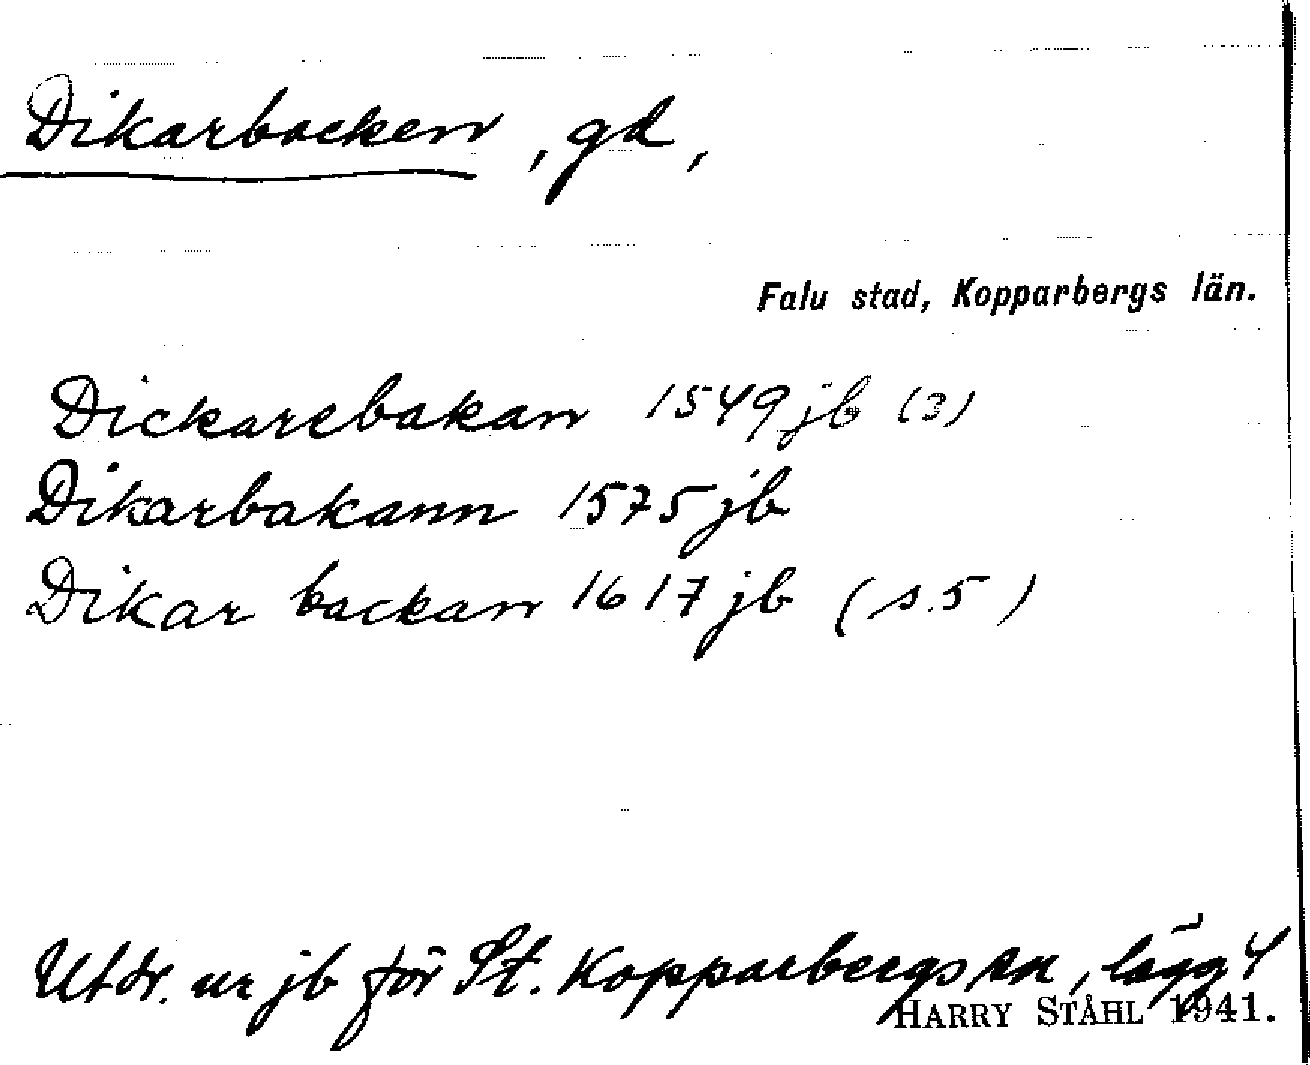 Dikarbacken, gd,
Falu stad, Kopparbergs län.
Dickarebakan 1549 jb (3)
Dikarbakann 1575 jb
Dikar backan 1617 jb (s. 5)
Utdr. ur jb för St. Kopparbergs sn, lägg 4
HARRY STÅHL 1941.